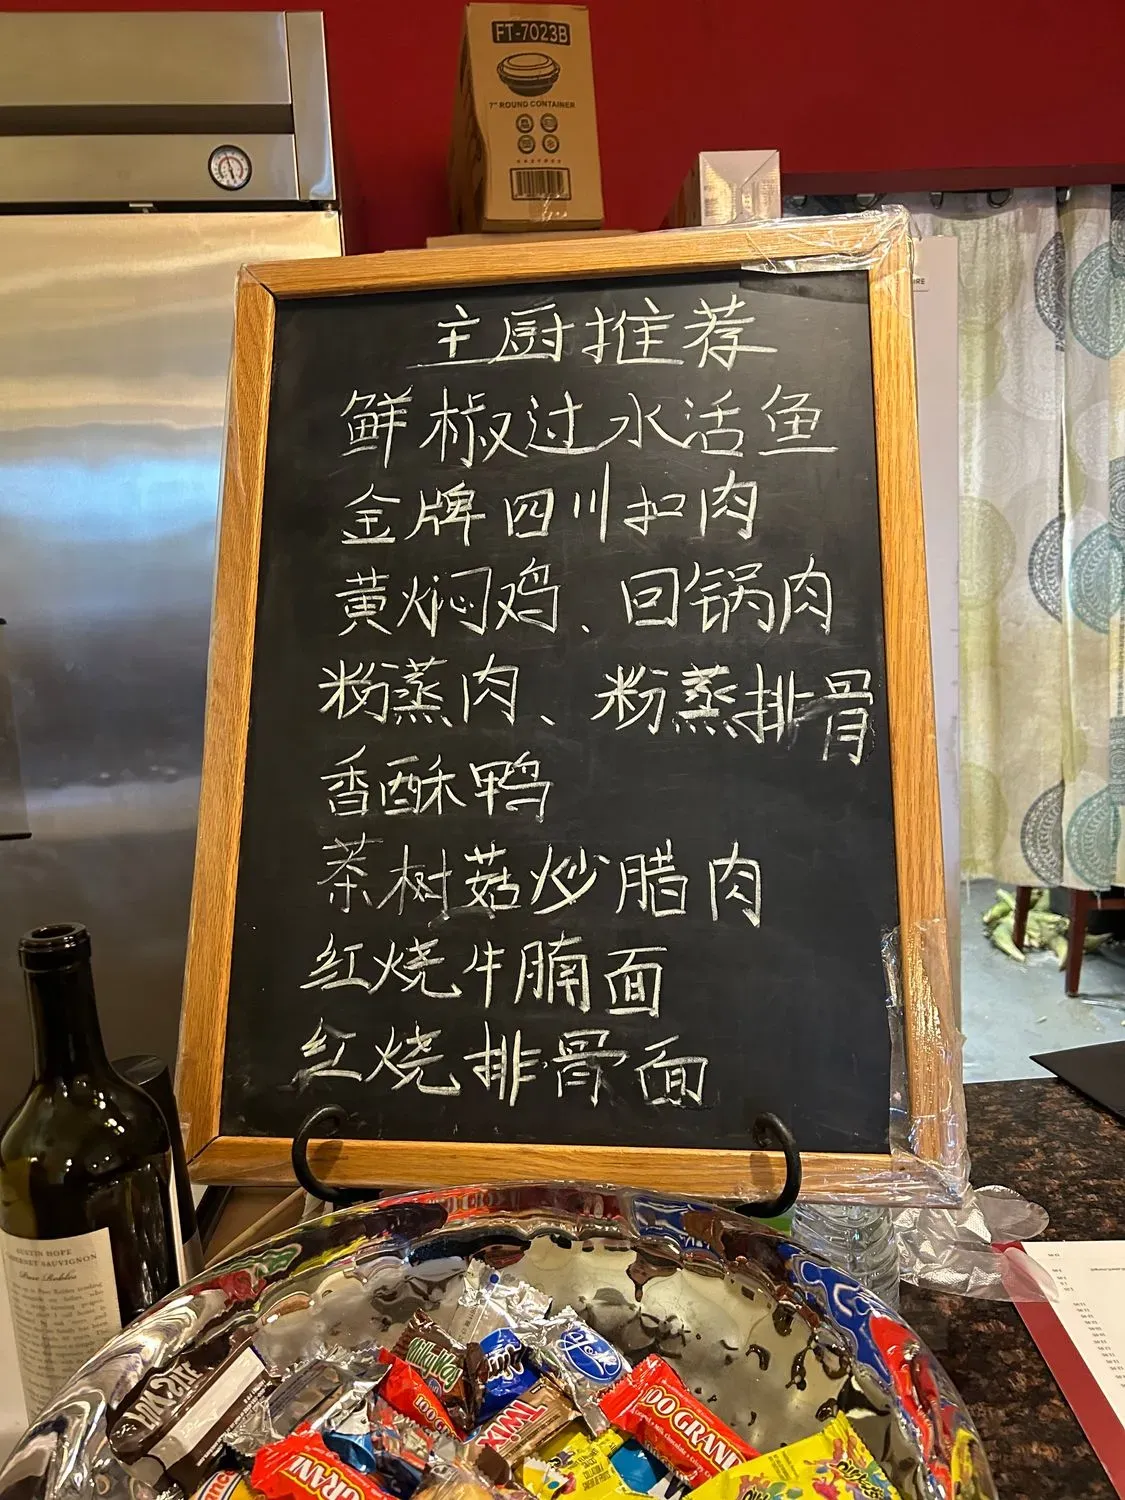 FT-7023B
7" ROUND CONTAINER
主厨推荐
鲜椒过水活鱼
金牌四川扣肉
黄焖鸡、回锅肉
粉蒸肉、粉蒸排骨
香酥鸭
茶树菇炒腊肉
红烧牛腩面
红烧排骨面
AUSTIN HOPE
CABERNET SAUVIGNON
Paso Robles
Milky Way
100 GRAND
TWIX
100 GRAND